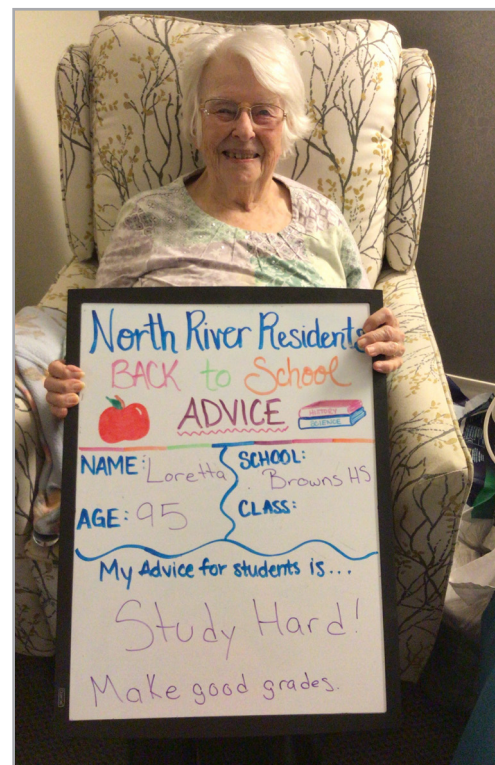 North River Residents
BACK to School
ADVICE
HISTORY
SCIENCE
NAME: Loretta
SCHOOL: Browns HS
AGE: 95
CLASS:
My Advice for students is...
Study Hard!
Make good grades.